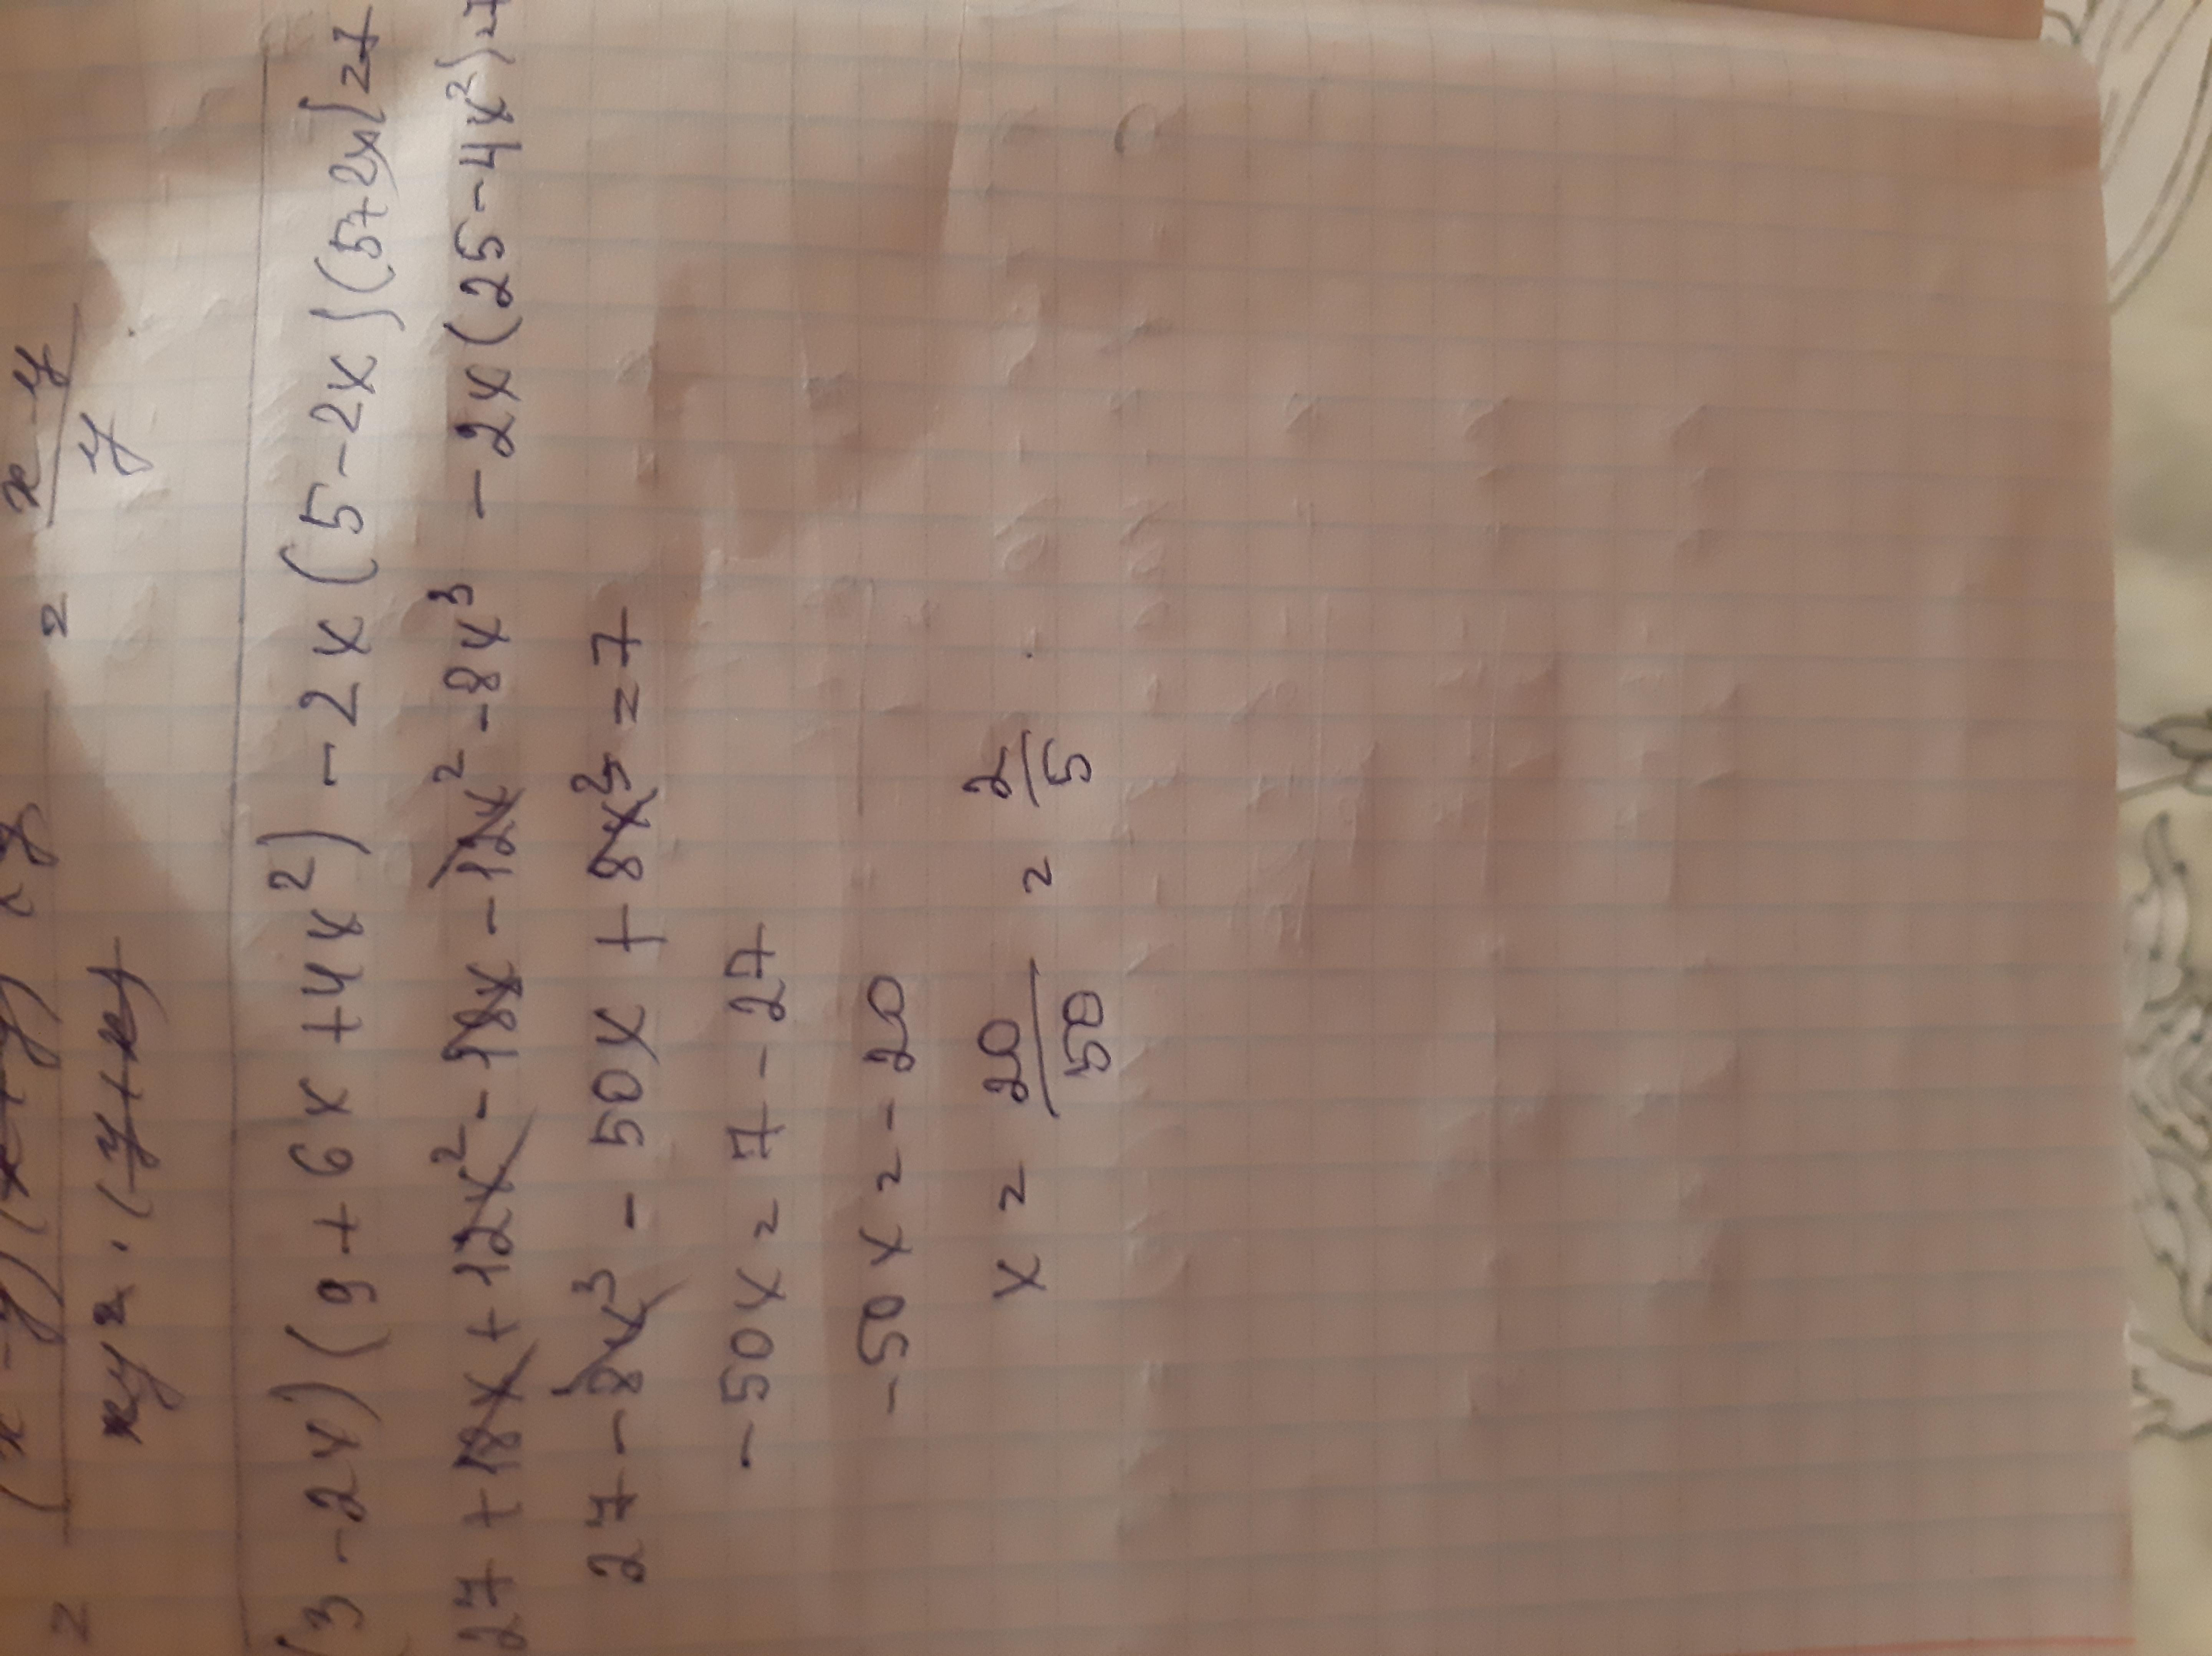 x-y
= y
xy² · (y+x)
(3-2x)(9+6x+4x²)-2x(5-2x)(5+2x)=7
27+18x+12x²-18x-12x²-8x³-2x(25-4x²)=7
27-8x³-50x+8x³=7
-50x=7-27
-50x=-20
x = 20/50 = 2/5